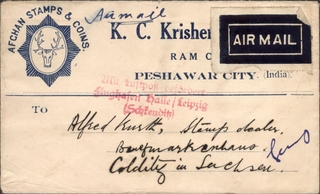 AFGHAN STAMPS & COINS.
Airmail
K. C. Krisher
RAM C
PESHAWAR CITY. (India)
AIR MAIL
Mit Luftpost befördert
Flughafen Halle/Leipzig
(Schkeuditz)
To
Alfred Kurth, Stamps dealer,
Briefmarkenhaus
Colditz in Sachsen.